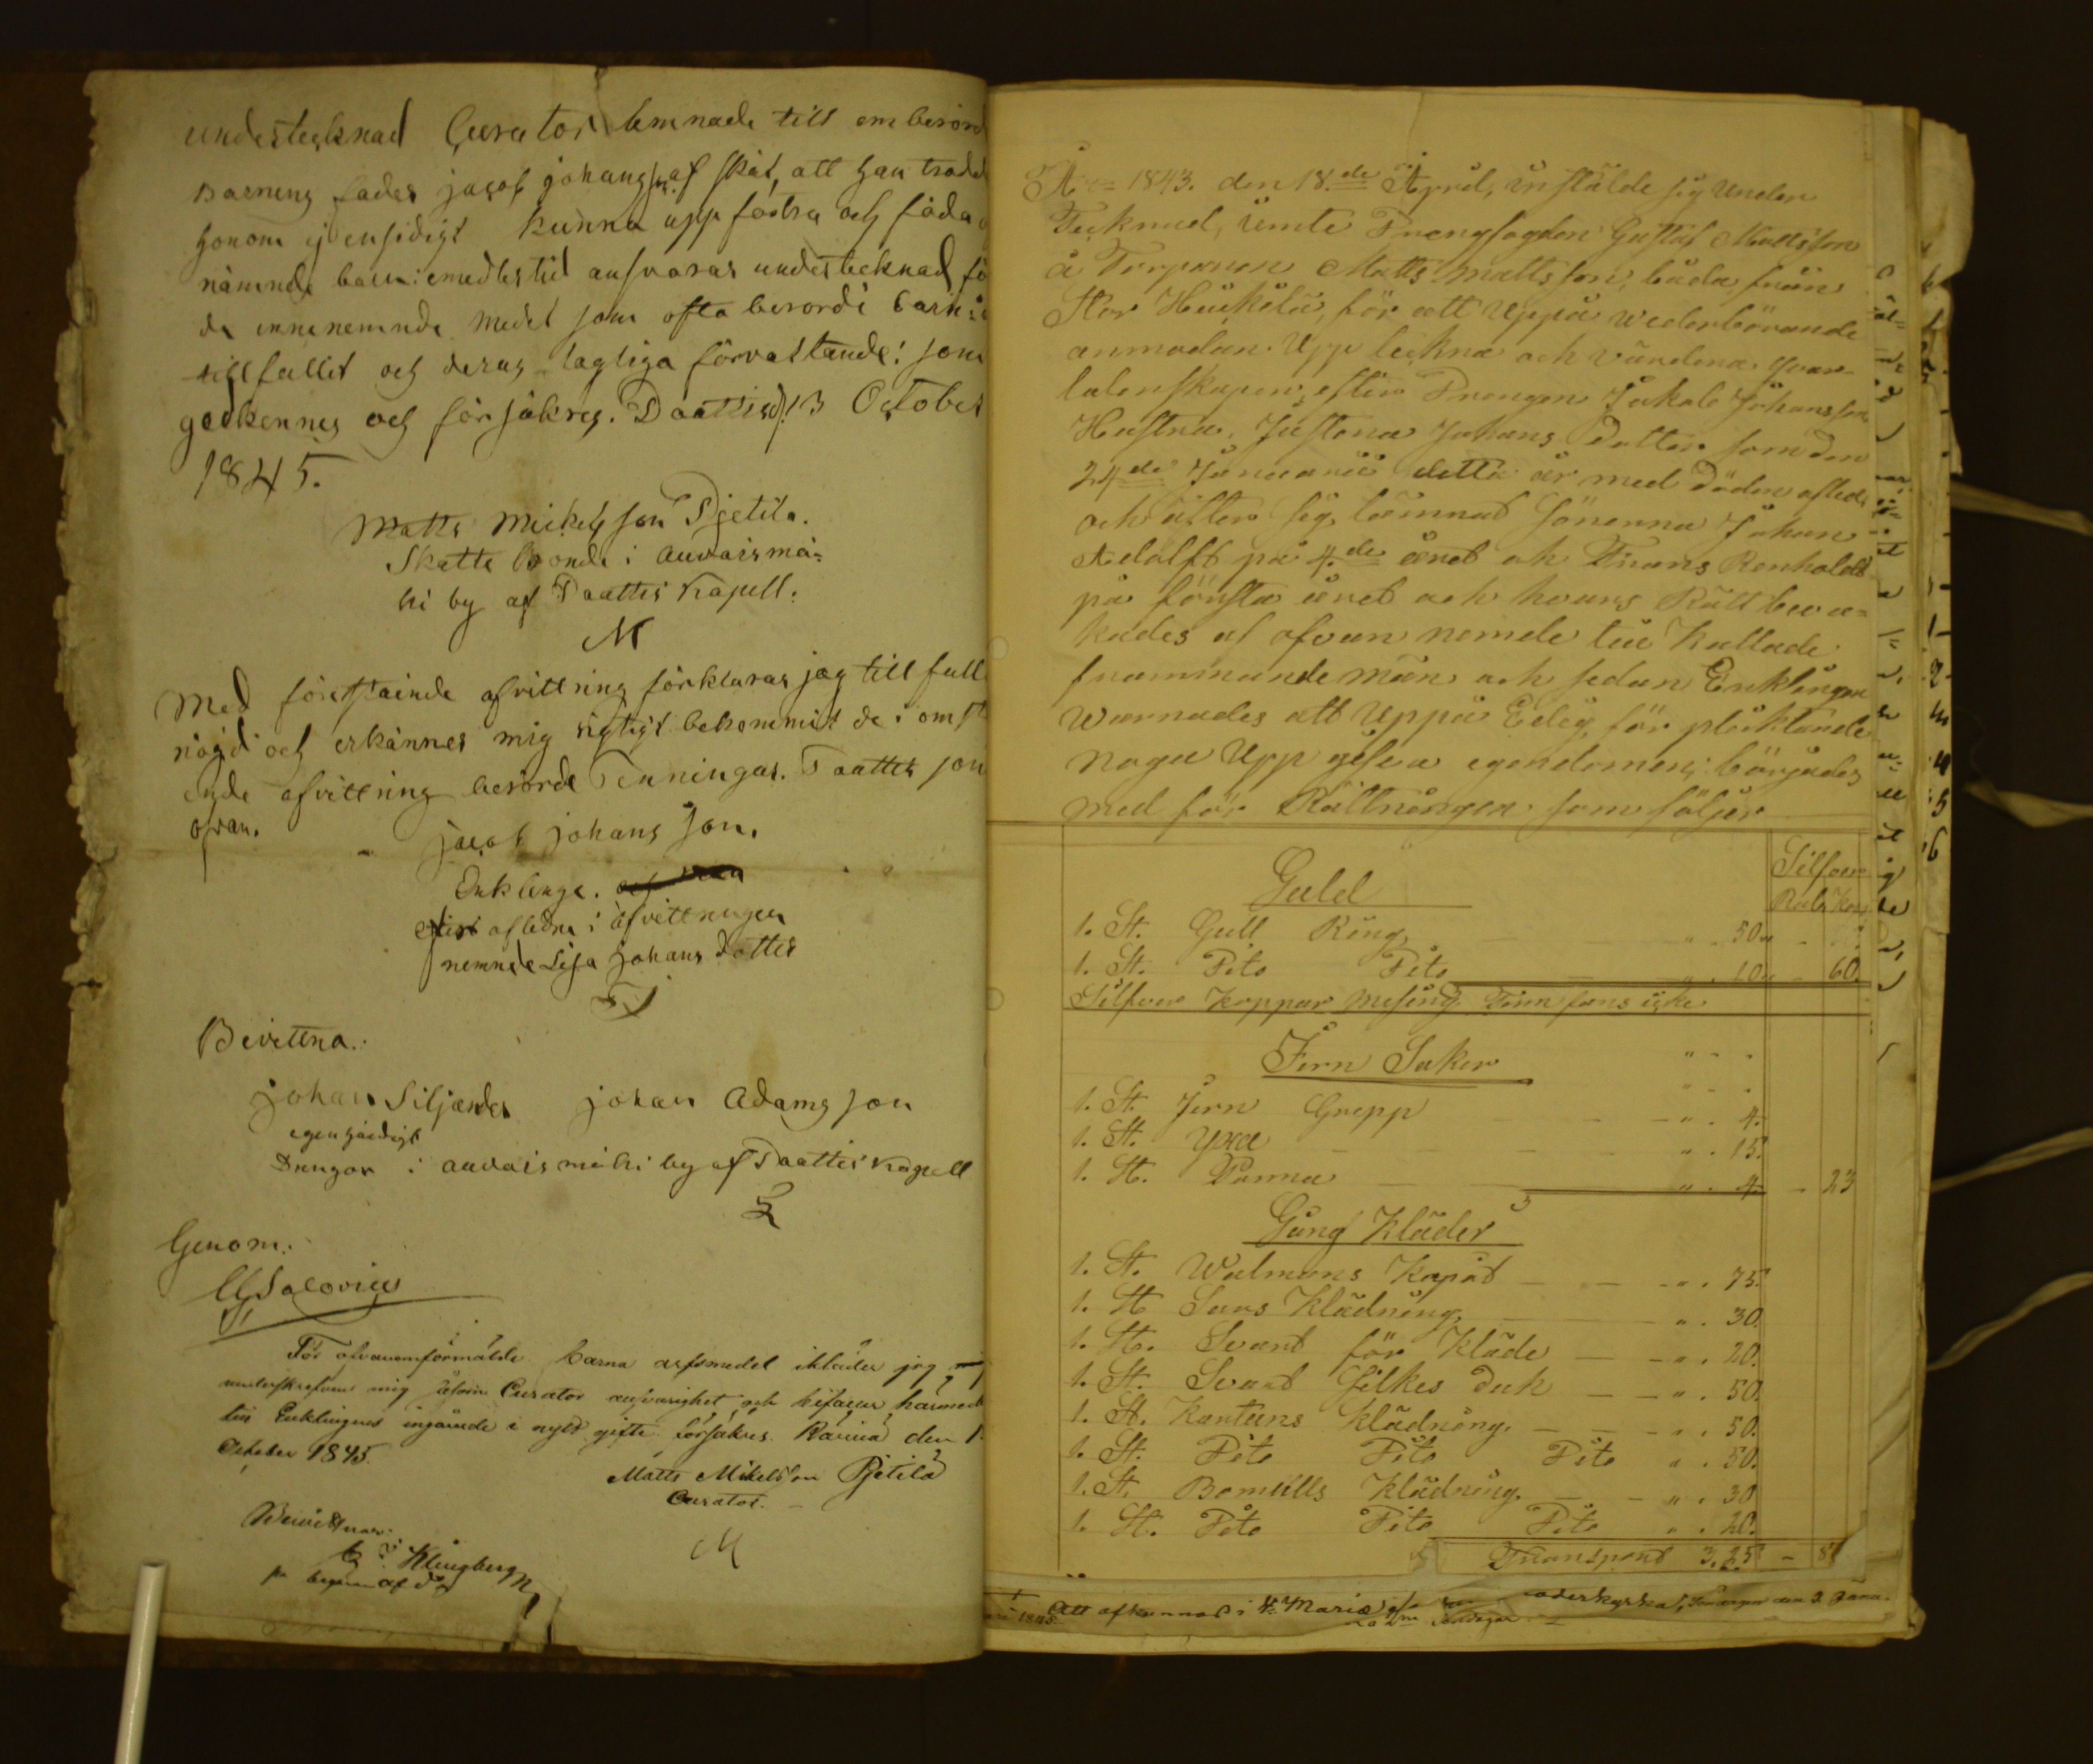 undertecknad Curator lemnade till om berörd
Barnens fader jacob johansson af skät, att han trodde
honom ej ensidigt kunna upp fostra och föda
nämnde barn: emedlertid ansvarar undertecknad fö
de innenemnde medel som ofta berörde barn
tillfallit och deras lagliga förvaltande: som
godkennes och försäkres. Paattis d. 13 October
1845.
Matts Mickels son Pjetila.
Skatte bonde i auvaismä=
ki by af Paattis Kapell.
M
Med förestående afvittring förklarar jag till full
nögd och erkännes mig rigtigt bekommit de i omst
ende afvittring berörde Penningar. Paattis som
ofvan.
jacob johans son.
Enklinge.
efter afledne i afvittringen
nemnde Lisa johans dotter
Bevittna:
johan Siljander johan Adams son
egenhändigt
Drengar i auvaismäki by af Paattis Kapell
Genom:
Salovius
För ofvanförmälde barns arfsmedel ikläder jag
underskrefven mig såsom Curator ansvarighet och bifaller härmed
till Enklingens ingående i nytt gifte försäkres. Räntä den 1
October 1845.
Matts Mikelsson Pjetilä
Curator.
M
Bewittnar:
Klingberg
på begäran af
År 1843. den 18.de April, instälde sig Under
Tecknad, jemte Drengfogden Gustaf Mattsson
å Torparen Matts Mattsson, båda från
Stor Heikkilä, för att Uppå wederbörande
anmodan Upp teckna och värdera qvar-
latenskapen, efter Drengen Jakob Johansson
Hustru, Justina Johans Dotter som den
24de Januarii detta år med döden afled,
och efter sig lemnat Sönerna Johan
Adolff på 4.de året och Frans Renholdt
på första året och hvars Rätt beva=
kades af ofvan nemde till Kallade
frammande män och sedan Enklingen
Warnades att Uppå Edelig för pliktande
noga Upp gifva egendomen, börjades
med för Rättningen som följer
Silfver
Rub. Kop
Guld
1. St. Gull Ring " . 50
1. St. Dito Dito " . 10 " – 60.
Silfver Koppar Mesing Tenn fans icke
Jern Saker
1. St. Jern Grepp – – " . 4.
1. St. Yxa – – – " . 15.
1. St. Panna – " . 4. – 23
Gång Kläder
1. St. Walmans Kapåt – – " . 75.
1. St. Sars Klädning, – " . 30.
1. St. Svart för Kläde – – " . 20.
1. St. Svart Silkes Duk – – " . 50.
1. St. Kartuns Klädning. – – " . 50.
1. St. Dito Dito Dito " . 50.
1. St. Bomulls Klädning. – – " . 30
1. St. Dito Dito Dito " . 20.
Transport 3.25 – 8
Att afkunnas i St Mariæ